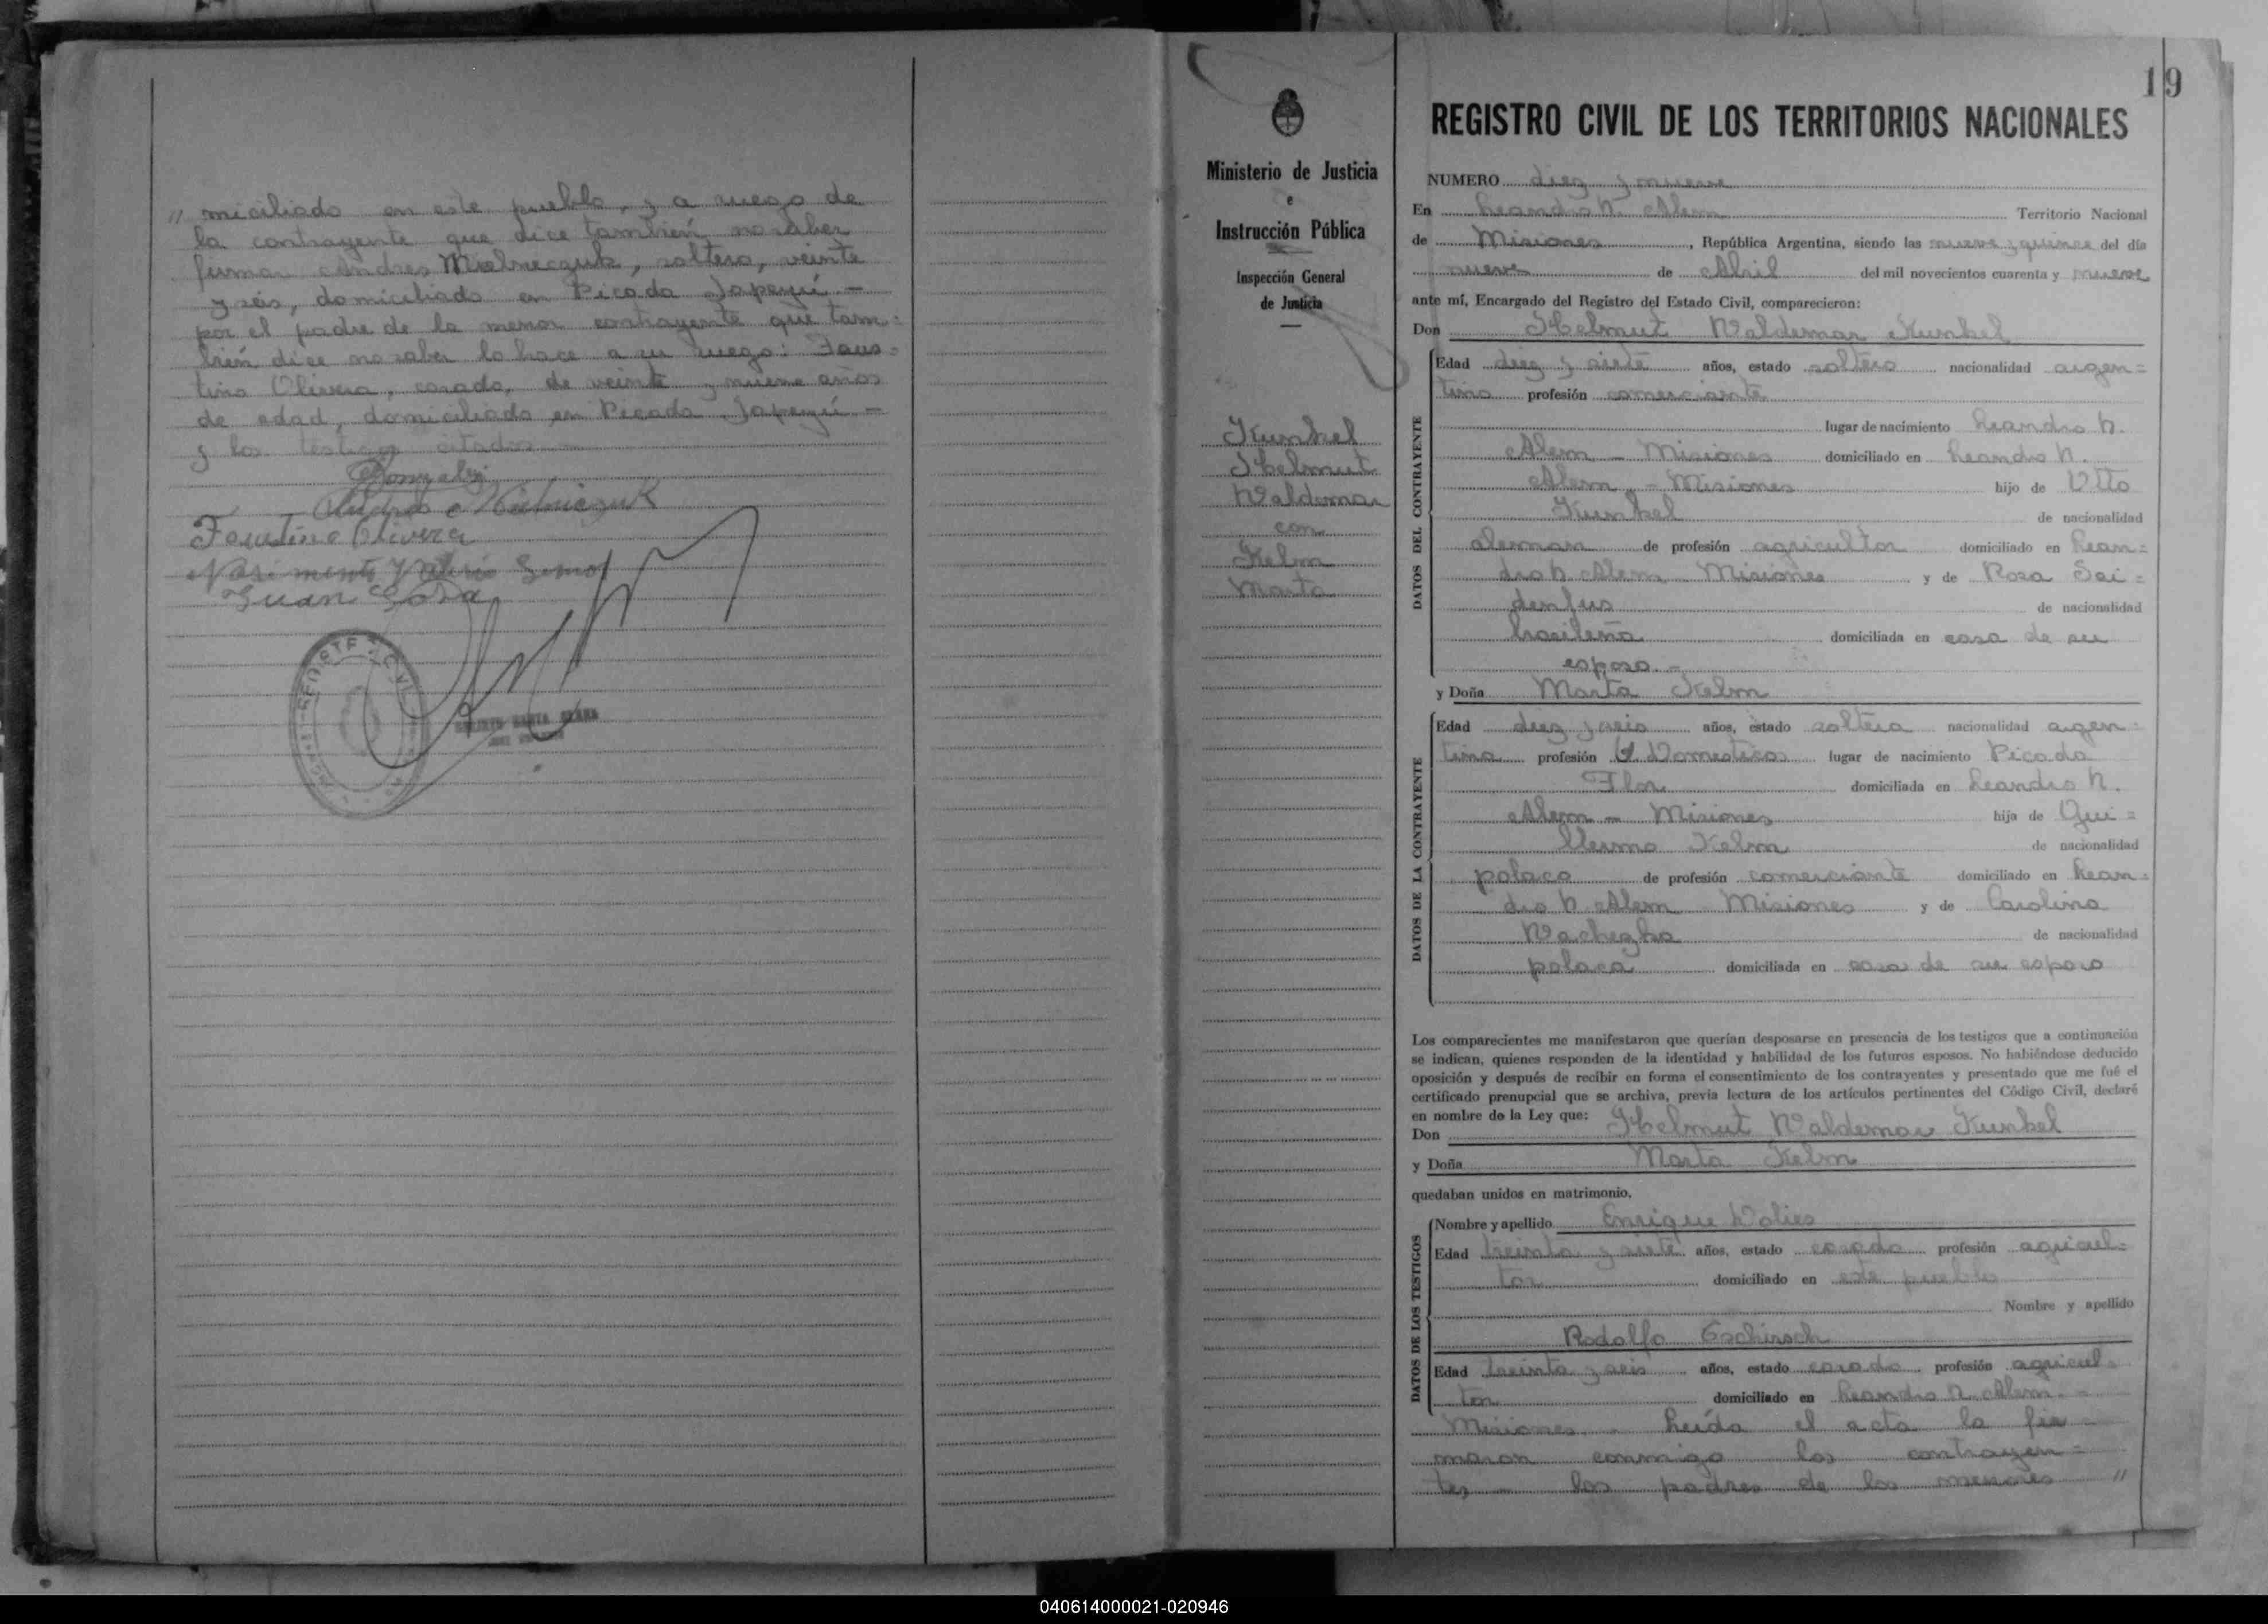 " miciliado en este pueblo, y a ruego de
la contrayente que dice también no saber
firmar Andres Mielneczuk, soltero, veinte
y seis, domiciliado en Picada Japeyú -
por el padre de la menor contrayente que tam=
bién dice no saber lo hace a su ruego: Faus=
tino Olivera, casado, de veinte y nueve años
de edad, domiciliado en Picada Japeyú -
y los testigos citados -
Gonzalez
Andres Mielniczuk
Faustino Olivera
Juan Sosa
19
REGISTRO CIVIL DE LOS TERRITORIOS NACIONALES
Ministerio de Justicia
e
Instrucción Pública
Inspección General
de Justicia
Kunkel
Helmut
Waldemar
con
Kelm
Marta
NUMERO diez y nueve
En Leandro N. Alem Territorio Nacional
de Misiones, República Argentina, siendo las nueve y quince del día
nueve de Abril del mil novecientos cuarenta y nueve
ante mí, Encargado del Registro del Estado Civil, comparecieron:
Don Helmut Waldemar Kunkel
DATOS DEL CONTRAYENTE
Edad diez y siete años, estado soltero nacionalidad argen=
tino profesión comerciante
lugar de nacimiento Leandro N.
Alem - Misiones domiciliado en Leandro N.
Alem - Misiones hijo de Otto
Kunkel de nacionalidad
aleman de profesión agricultor domiciliado en Lean=
dro N. Alem Misiones y de Rosa Sei=
denfus de nacionalidad
brasileña domiciliada en casa de su
esposo. -
y Doña Marta Kelm
DATOS DE LA CONTRAYENTE
Edad diez y seis años, estado soltera nacionalidad argen=
tina profesión Q. Domesticos lugar de nacimiento Picada
Flor domiciliada en Leandro N.
Alem - Misiones hija de Gui=
llermo Kelm de nacionalidad
polaco de profesión comerciante domiciliado en Lean=
dro N. Alem Misiones y de Carolina
Wachezka de nacionalidad
polaca domiciliada en casa de su esposo
Los comparecientes me manifestaron que querían desposarse en presencia de los testigos que a continuación
se indican, quienes responden de la identidad y habilidad de los futuros esposos. No habiéndose deducido
oposición y después de recibir en forma el consentimiento de los contrayentes y presentado que me fué el
certificado prenupcial que se archiva, previa lectura de los artículos pertinentes del Código Civil, declaré
en nombre de la Ley que:
Don Helmut Waldemar Kunkel
y Doña Marta Kelm
quedaban unidos en matrimonio.
DATOS DE LOS TESTIGOS
Nombre y apellido Enrique Wolies
Edad treinta y siete años, estado casado profesión agricul=
tor domiciliado en este pueblo
Nombre y apellido
Rodolfo Eschirsch
Edad treinta y seis años, estado casado profesión agricul=
tor domiciliado en Leandro N. Alem. -
Misiones. - Leída el acta la fir=
maron conmigo los contrayen=
tes - los padres de los menores "
040614000021-020946